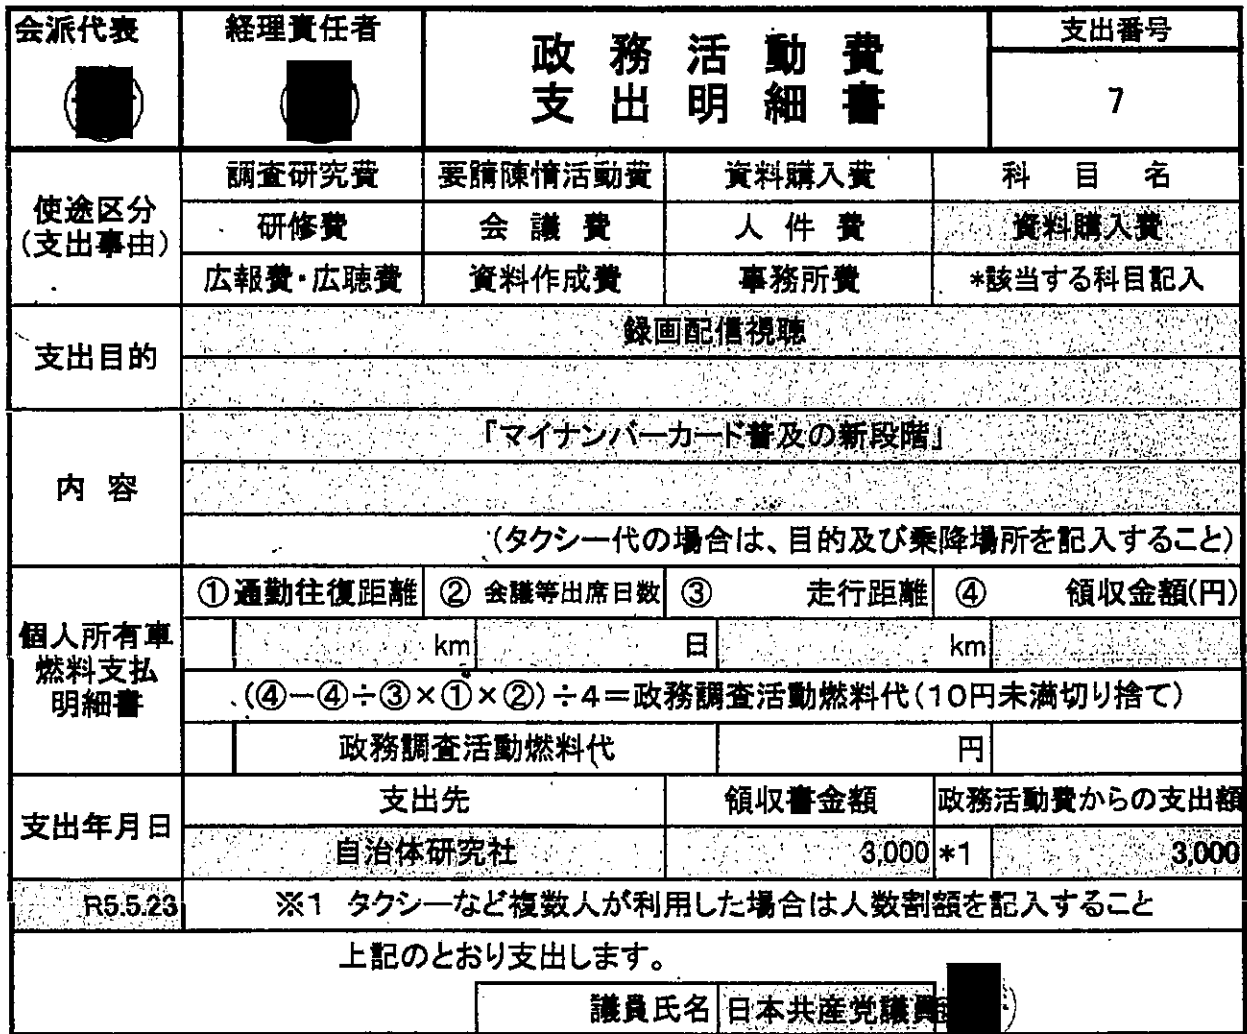 会派代表 経理責任者 政務活動費 支出明細書 支出番号
7
使途区分(支出事由) 調査研究費 要請陳情活動費 資料購入費 科目名
研修費 会議費 人件費 資料購入費
広報費・広聴費 資料作成費 事務所費 *該当する科目記入
支出目的 録画配信視聴
内容 「マイナンバーカード普及の新段階」
(タクシー代の場合は、目的及び乗降場所を記入すること)
個人所有車燃料支払明細書 ①通勤往復距離 ②会議等出席日数 ③走行距離 ④領収金額(円)
km 日 km
(④−④÷③×①×②)÷4=政務調査活動燃料代(10円未満切り捨て)
政務調査活動燃料代 円
支出年月日 支出先 領収書金額 政務活動費からの支出額
自治体研究社 3,000 *1 3,000
R5.5.23 ※1 タクシーなど複数人が利用した場合は人数割額を記入すること
上記のとおり支出します。
議員氏名 日本共産党議員